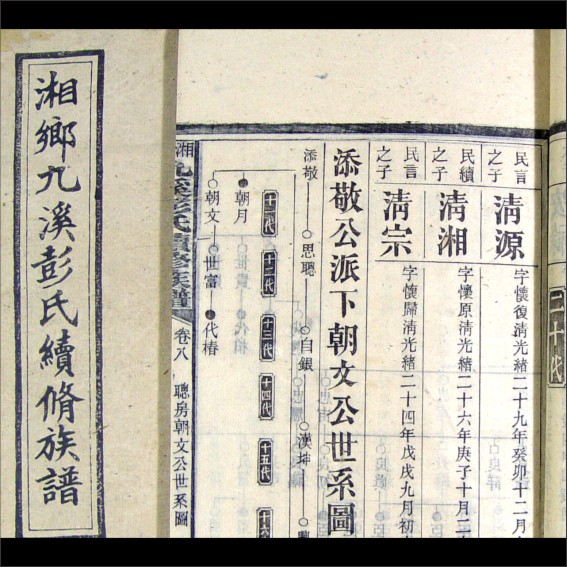 湘鄉九溪彭氏續脩族譜
民言之子 清源 字懷復清光緒二十九年癸卯十二月
民續之子 清湘 字懷原清光緒二十六年庚子十月二
民言之子 清宗 字懷歸清光緒二十四年戊戌九月初
添敬公派下朝文公世系圖
添敬 思聰 白銀 漢坤
十一代 十二代 十三代 十四代 十五代
朝月
朝文 世富 代椿
湘鄉九溪彭氏續修族譜 卷八 聰房朝文公世系圖
三十代